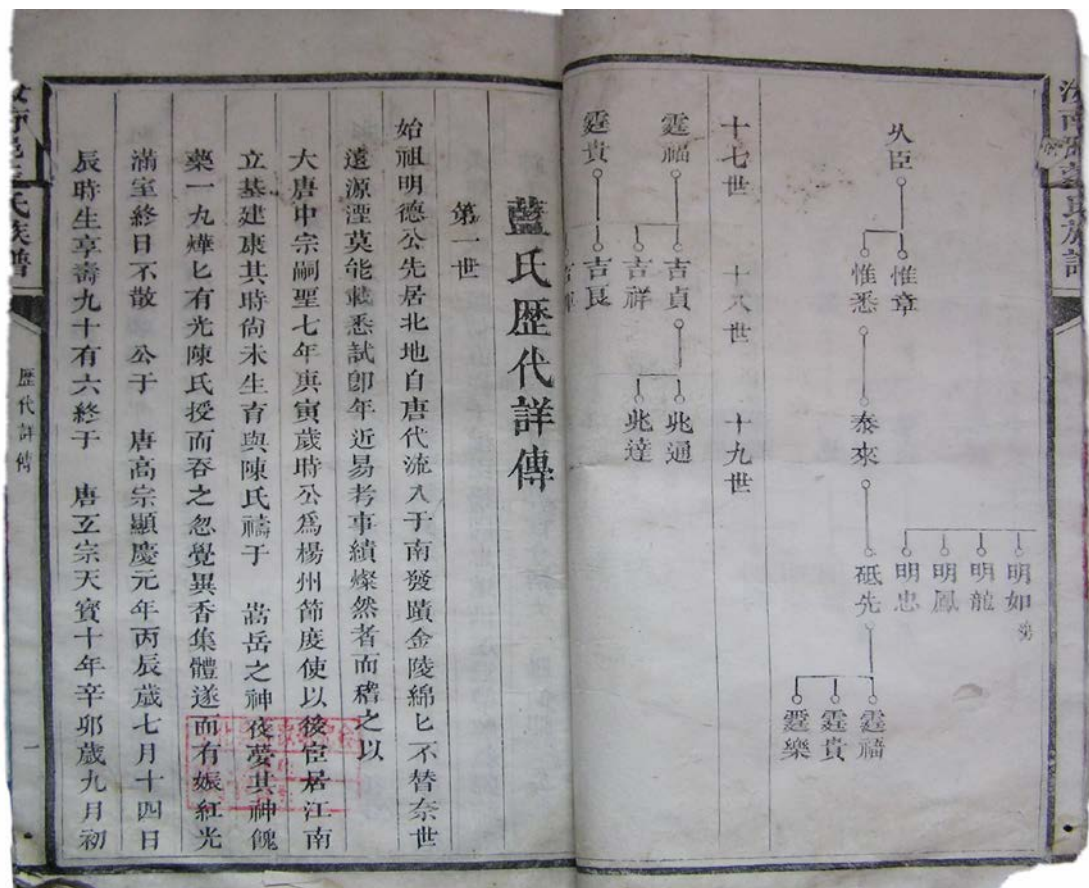 汝南藍氏族譜
㕥臣
惟章
惟悉
泰來
明如
明龍
明鳳
明忠
砥先
霆福
霆貴
霆樂
十七世
十八世
十九世
霆福
吉貞
吉祥
兆通
兆達
霆貴
吉良
藍氏歷代詳傳
第一世
始祖明德公先居北地自唐代流入于南發蹟金陵綿匕不替奈世
遠源湮莫能載悉試卽年近易考事績燦然者而稽之以
大唐中宗嗣聖七年庚寅歲時公爲楊州節度使以後宦居江南
立基建康其時尙未生育與陳氏禱于 嵩岳之神夜夢其神餽
藥一九燁匕有光陳氏授而吞之忽覺異香集體遂而有娠紅光
滿室終日不散 公于 唐高宗顯慶元年丙辰歲七月十四日
辰時生享壽九十有六終于 唐玄宗天寶十年辛卯歲九月初
氏族譜
歷代詳傳
一